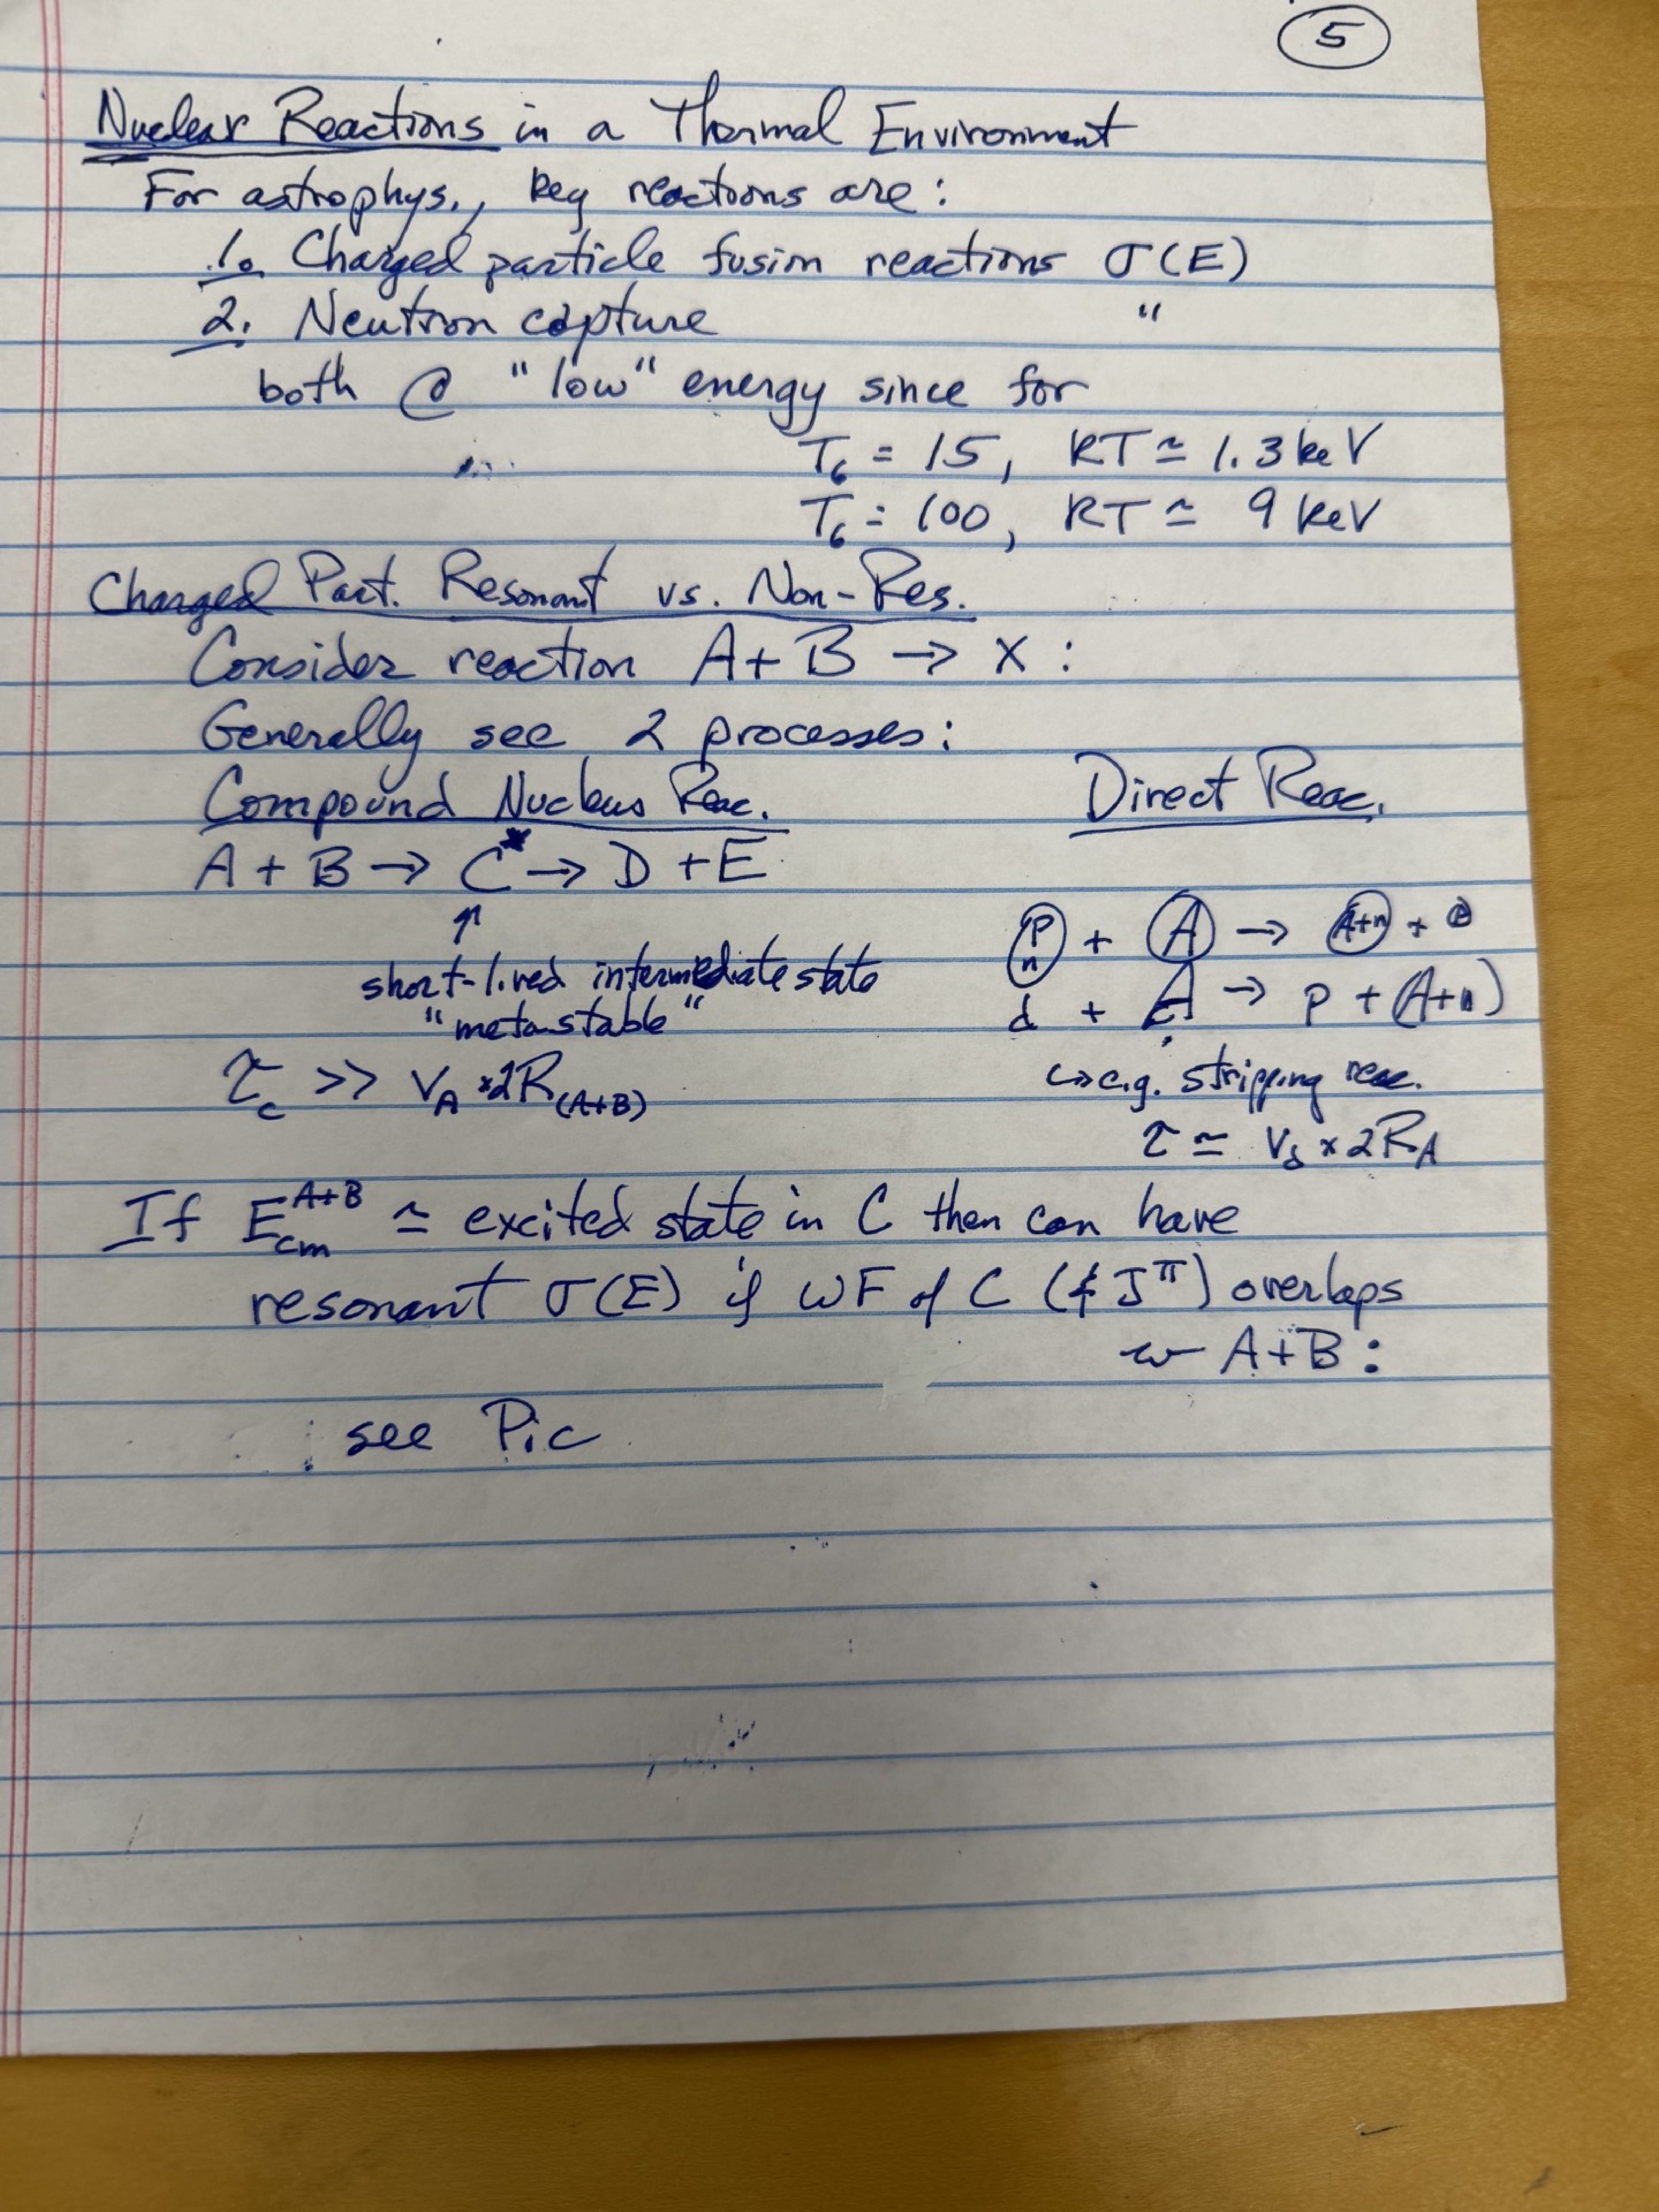 5
Nuclear Reactions in a Thermal Environment
For astrophys., key reactions are:
1. Charged particle fusion reactions σ(E)
2. Neutron capture "
both @ "low" energy since for
T₆ = 15, kT ≃ 1.3 keV
T₆ = 100, kT ≃ 9 keV
Charged Part. Resonant vs. Non-Res.
Consider reaction A + B → X :
Generally see 2 processes:
Compound Nucleus Reac.
A + B → C* → D + E
↑
short-lived intermediate state
"metastable"
τ_c >> v_A × 2R_(A+B)
Direct Reac.
p n + A → A+n + p
d + A → p + (A+n)
↳ e.g. stripping reac.
τ ≃ v_d × 2R_A
If E_cm^A+B ≃ excited state in C then can have
resonant σ(E) if WF of C (& J^π) overlaps
w A+B :
see Pic